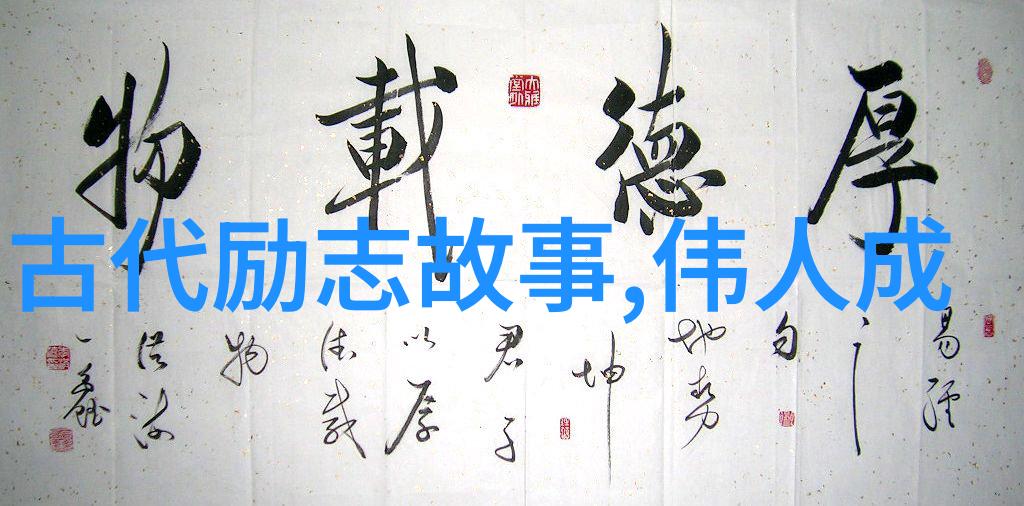 厚德載物
古代励志故事,伟人成
易經之句
地勢坤
君子以厚德載物